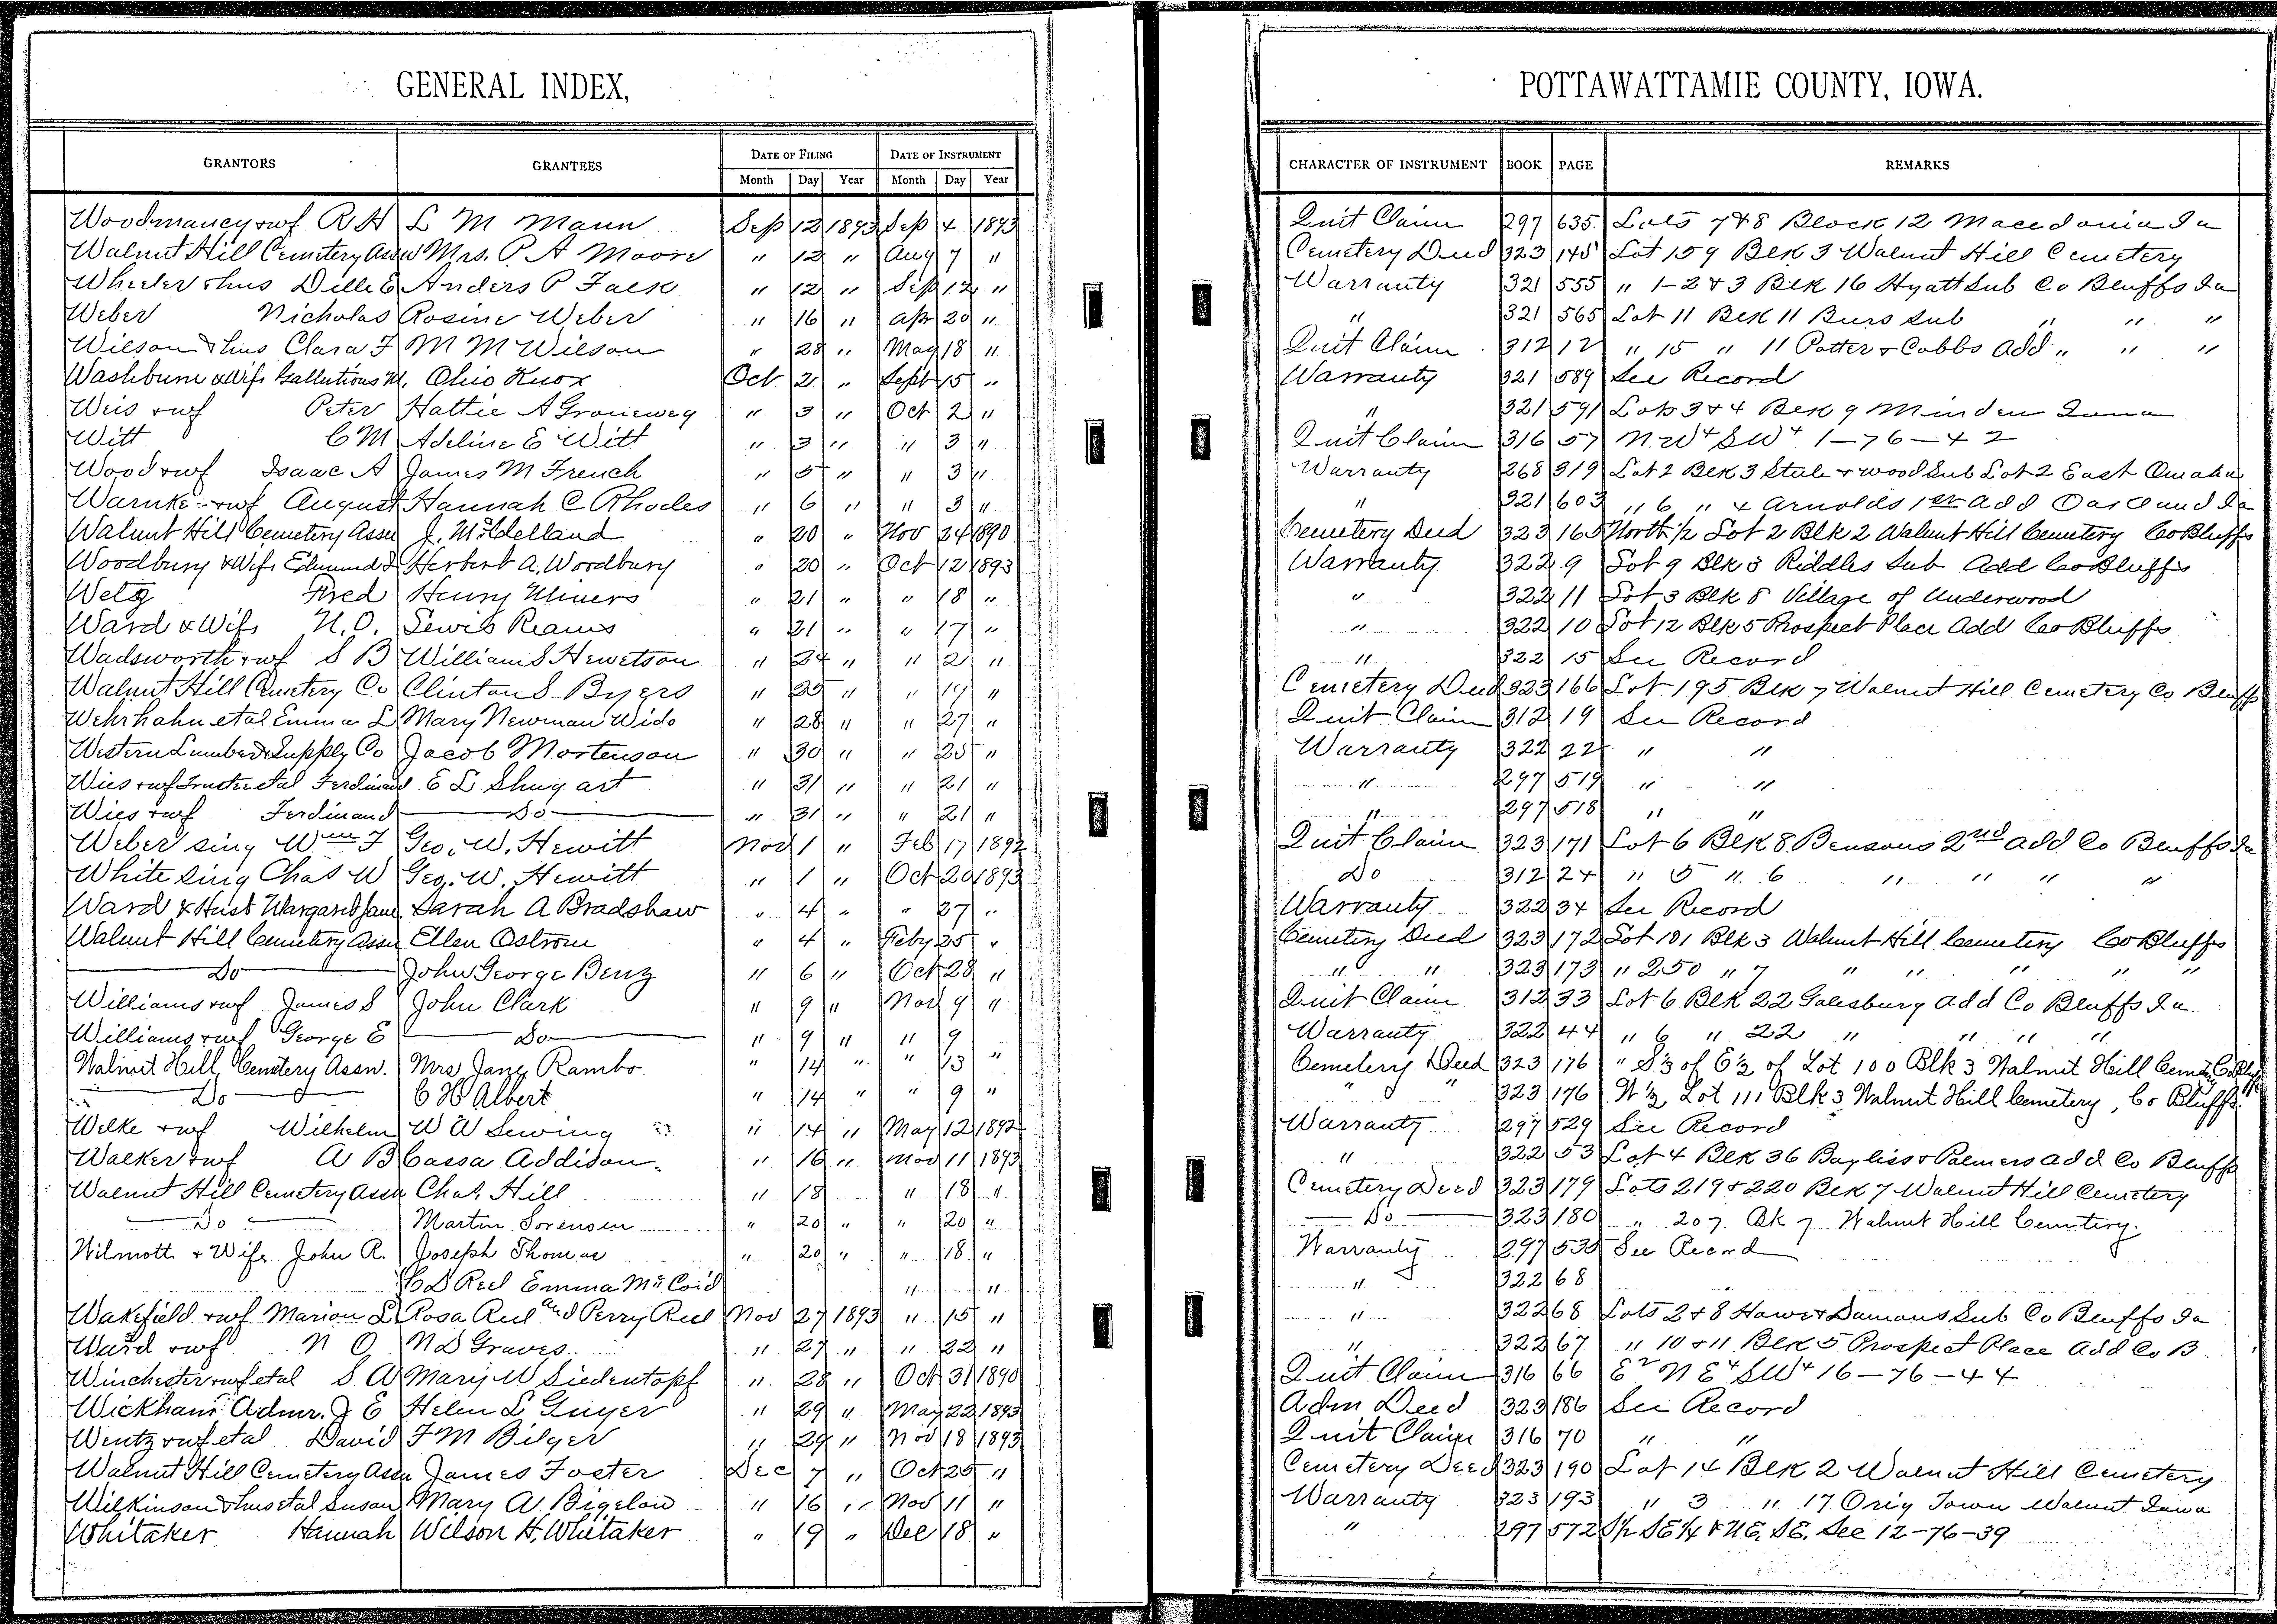 GENERAL INDEX,
GRANTORS GRANTEES DATE OF FILING DATE OF INSTRUMENT
Month Day Year Month Day Year
Woodmancy & wf R H L M Mann Sep 12 1893 Sep 4 1893
Walnut Hill Cemetery Assn Mrs. P. A Moore " 12 " Aug 7 "
Wheeler & hus Dille E Anders P Falk " 12 " Sep 12 "
Weber Nicholas Rosine Weber " 16 " Apr 20 "
Wilson & hus Clara F M M Wilson " 28 " May 18 "
Washburn & Wife Ohio Knox Oct 2 " Sept 15 "
Weis & wf Peter Hattie A Groneweg " 3 " Oct 2 "
Witt C M Adeline E Witt " 3 " " 3 "
Wood & wf Isaac A James M French " 5 " " 3 "
Warnke & wf August Hannah C Rhodes " 6 " " 3 "
Walnut Hill Cemetery Assn J. McClelland " 20 " Nov 24 1890
Woodbury & Wife Edmund I Herbert A. Woodbury " 20 " Oct 12 1893
Welz Fred Henry Miners " 21 " " 18 "
Ward & Wife N. O. Lewis Reams " 21 " " 17 "
Wadsworth & wf S B William S Hewetson " 24 " " 2 "
Walnut Hill Cemetery Co Clinton S Byers " 25 " " 19 "
Wehrhahn et al Emma L Mary Newman Wido " 28 " " 27 "
Western Lumber & Supply Co Jacob Mortenson " 30 " " 25 "
Wies & wf Trustee et al Ferdinand E L Shugart " 31 " " 21 "
Wies & wf Ferdinand Do " 31 " " 21 "
Weber sing Wm F Geo. W. Hewitt Nov 1 " Feb 17 1892
White sing Chas W Geo. W. Hewitt " 1 " Oct 20 1893
Ward & Husb Margaret Jane Sarah A Bradshaw " 4 " " 27 "
Walnut Hill Cemetery Assn Ellen Ostrom " 4 " Feby 25 "
Do John George Benz " 6 " Oct 28 "
Williams & wf James S John Clark " 9 " Nov 9 "
Williams & wf George E Do " 9 " " 9
Walnut Hill Cemetery Assn. Mrs Jane Rambo " 14 " " 13 "
Do C H Albert " 14 " " 9 "
Welke & wf Wilhelm W W Sewing " 14 " May 12 1892
Walker & wf A B Cassa Addison " 16 " Nov 11 1893
Walnut Hill Cemetery Assn Chas. Hill " 18 " 18 "
Do Martin Sorensen " 20 " " 20 "
Wilmott & Wife John R. Joseph Thomas " 20 " " 18 "
C D Reel Emma McCoid " "
Wakefield & wf Marion L Rosa Reel and Perry Reel Nov 27 1893 " 15 "
Ward & wf N O N D Graves " 27 " " 22 "
Winchester & wf et al S A Mary W Siedentopf " 28 " Oct 31 1890
Wickham Admr. J E Helen L Guyer " 29 " May 22 1893
Wentz & wf et al David F M Bilger " 29 " Nov 18 1893
Walnut Hill Cemetery Assn James Foster Dec 7 " Oct 25 "
Wilkinson & hus et al Susan Mary A Bigelow " 16 " Nov 11 "
Whitaker Hannah Wilson H. Whitaker " 19 " Dec 18 "
POTTAWATTAMIE COUNTY, IOWA.
CHARACTER OF INSTRUMENT BOOK PAGE REMARKS
Quit Claim 297 635 Lots 7 & 8 Block 12 Macedonia Ia
Cemetery Deed 323 145 Lot 159 Blk 3 Walnut Hill Cemetery
Warranty 321 555 " 1-2 & 3 Blk 16 Hyatt Sub Co Bluffs Ia
" 321 565 Lot 11 Blk 11 Burs Sub " " "
Quit Claim 312 12 " 15 " 11 Potter & Cobbs Add " " "
Warranty 321 589 See Record
" 321 591 Lots 3 & 4 Blk 9 Minden Iowa
Quit Claim 316 57 N.W4 SW4 1-76-42
Warranty 268 319 Lot 2 Blk 3 Stule & wood Sub Lot 2 East Omaha
" 321 603 " 6 " 4 Arnolds 1st Add Oakland Ia
Cemetery Deed 323 165 North 1/2 Lot 2 Blk 2 Walnut Hill Cemetery Co Bluffs
Warranty 322 9 Lot 9 Blk 3 Riddles Sub Add Co Bluffs
" 322 11 Lot 3 Blk 8 Village of Underwood
" 322 10 Lot 12 Blk 5 Prospect Place Add Co Bluffs
" 322 15 See Record
Cemetery Deed 323 166 Lot 195 Blk 7 Walnut Hill Cemetery Co Bluffs
Quit Claim 312 19 See Record
Warranty 322 22 " "
" 297 519 " "
" 297 518 " "
Quit Claim 323 171 Lot 6 Blk 8 Bensons 2nd add Co Bluffs Ia
Do 312 24 " 5 " 6 " " " "
Warranty 322 34 See Record
Cemetery Deed 323 172 Lot 101 Blk 3 Walnut Hill Cemetery Co Bluffs
" " 323 173 " 250 " 7 " " " " "
Quit Claim 312 33 Lot 6 Blk 22 Galesburg add Co Bluffs Ia.
Warranty 322 44 " 6 " 22 " " " "
Cemetery Deed 323 176 " S 1/3 of E 1/2 of Lot 100 Blk 3 Walnut Hill Cemty Co Bluffs
" " 323 176 W 1/2 Lot 111 Blk 3 Walnut Hill Cemetery, Co Bluffs.
Warranty 297 529 See Record
" 322 53 Lot 4 Blk 36 Bayliss & Palmers add Co Bluffs
Cemetery Deed 323 179 Lots 219 & 220 Blk 7 Walnut Hill Cemetery
Do 323 180 " 207. Bk 7 Walnut Hill Cemetery.
Warranty 297 535 See Record
" 322 68
" 322 68 Lots 2 & 8 Howe & Damons Sub Co Bluffs Ia
" 322 67 " 10 & 11 Blk 5 Prospect Place Add Co B.
Quit Claim 316 66 E2 N E4 SW4 16-76-44
Adm Deed 323 186 See Record
Quit Claim 316 70 " "
Cemetery Deed 323 190 Lot 14 Blk 2 Walnut Hill Cemetery
Warranty 323 193 " 3 " 17 Orig Town Walnut Iowa
" 297 572 S 1/2 SE 1/4 & N.E. S.E. Sec 12-76-39